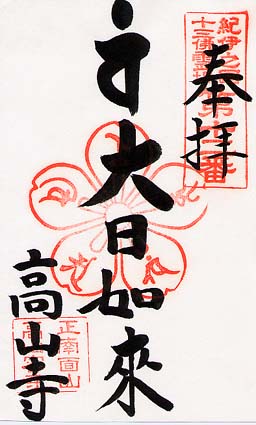 奉拝
紀伊之国
十三佛霊場第十二番
𑖀大日如來
正南面山
高山寺